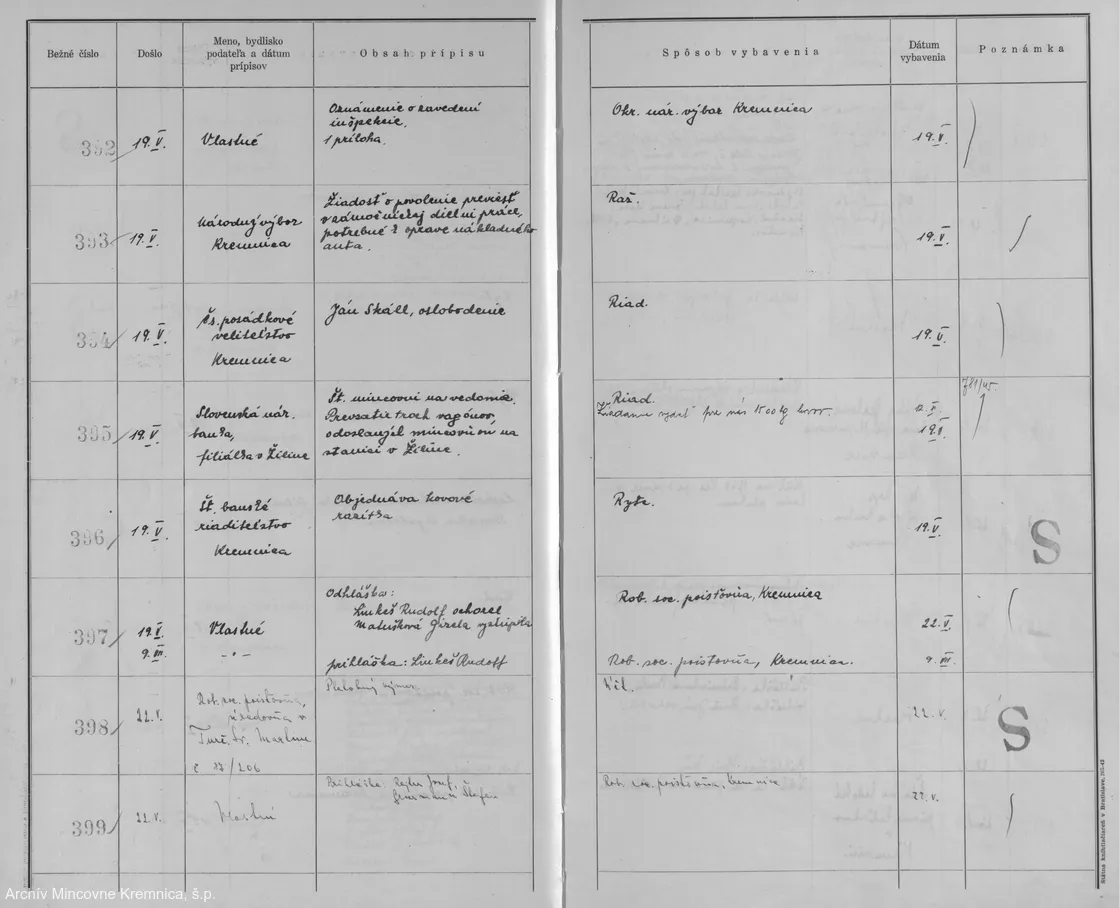 Bežné číslo
Došlo
Meno, bydlisko
podateľa a dátum
prípisov
Obsah prípisu
Spôsob vybavenia
Dátum
vybavenia
Poznámka
392
19.V.
Vlastné
Oznámenie o zavedení
inšpekcie.
1 príloha.
Okr. nár. výbor Kremnica
19.V.
393
19.V.
Národný výbor
Kremnica
Žiadosť o povolenie previesť
v zámočníckej dielni práce,
potrebné k oprave nákladného
auta.
19.V.
394
19.V.
Čs. posádkové
veliteľstvo
Kremnica
Ján Skáll, oslobodenie
Riad.
19.V.
395
19.V.
Slovenská nár.
banka,
filiálka v Žiline
Št. mincovni na vedomie.
Prevzatie troch vagónov
na
stanici v Žiline.
Riad.
pre nás 1500 kg
19.V.
781/45.
396
19.V.
Št. banské
riaditeľstvo
Kremnica
Objednáva kovové
razítka
Ryt.
19.V.
S
397
19.V.
9.VII.
Vlastné
- " -
Odhláška:
Linkeš Rudolf ochorel
Matušková Gizela vystúpila
prihláška: Linkeš Rudolf
Rob. soc. poisťovňa, Kremnica
22.V.
Rob. soc. poisťovňa, Kremnica.
9.VII.
398
22.V.
Rob. soc. poisťovňa,
úradovňa v
Turč. Sv. Martine
č 27/206
Platobný výmer
22.V.
S
399
22.V.
Vlastné
Prihláška:
Štefan
Rob. soc. poisťovňa, Kremnica
22.V.
Štátna kníhtlačiareň v Bratislave, 205-42
Archív Mincovne Kremnica, š.p.